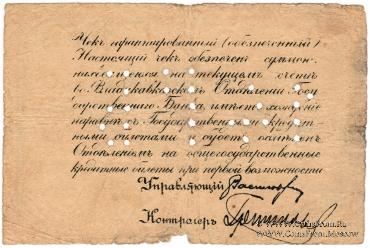 Чекъ гарантированный (обезпеченный)
Настоящій чекъ обезпеченъ суммою,
на текущемъ счетѣ
во Владикавказскомъ Отдѣленіи Госу
дарственнаго Банка, имѣетъ хожденіе
наравнѣ съ Государственными кредит
ными билетами и будетъ обмѣненъ
Отдѣленіемъ на общегосударственные
кредитные билеты при первой возможности
Управляющій
Контролеръ
www.StaraMoneta.ru
CoinsFromMoscow